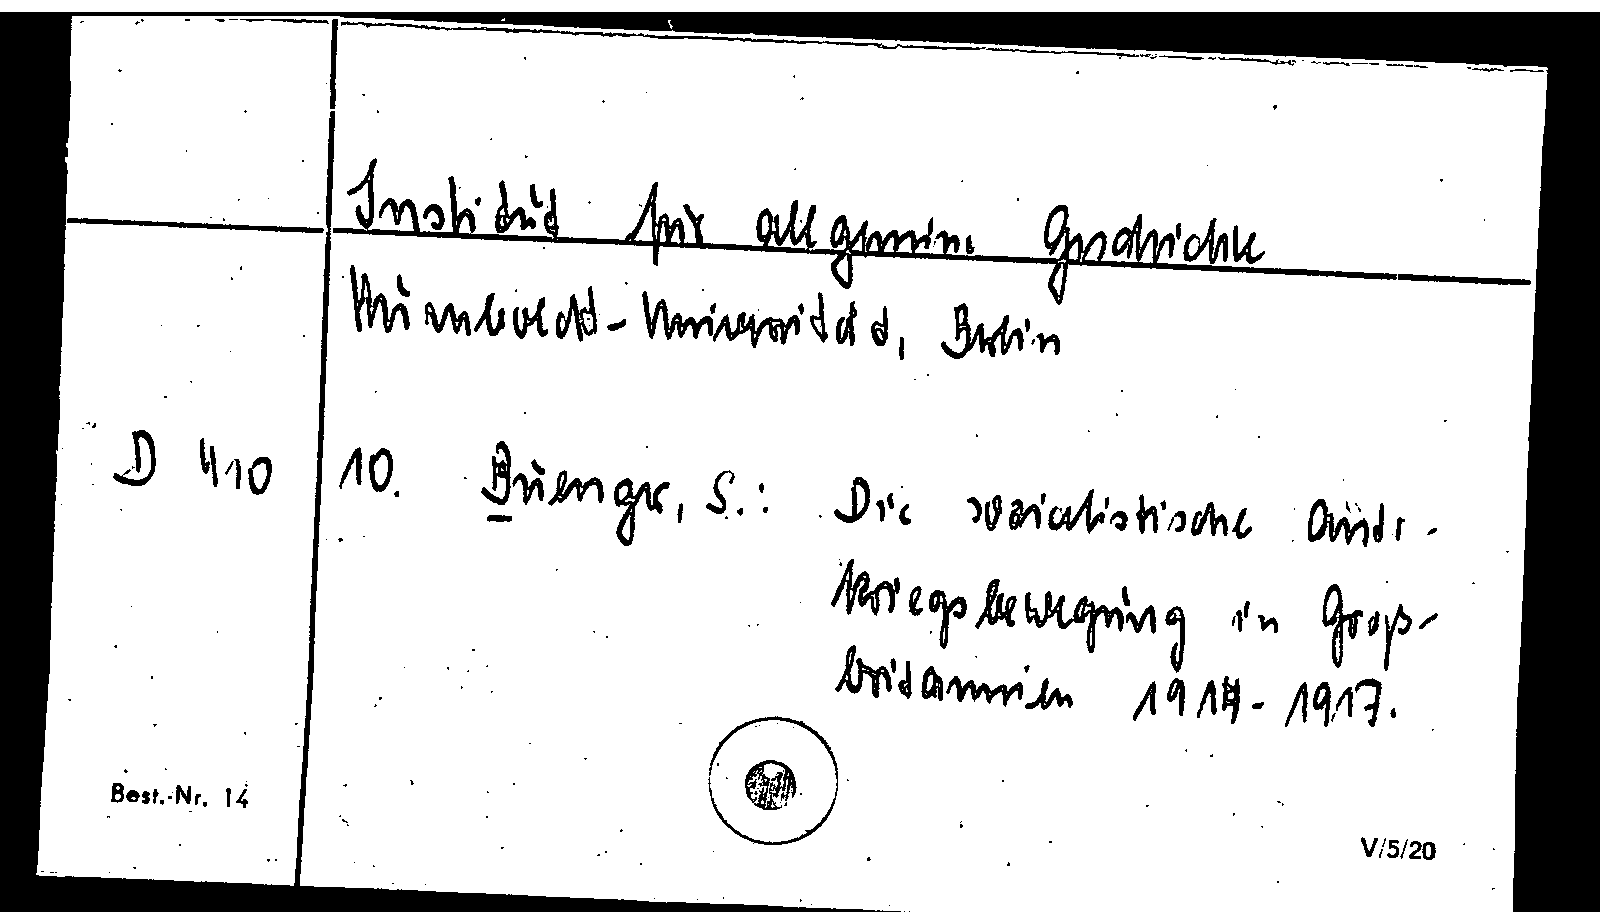 Institut für allgemeine Geschichte
Humboldt-Universität, Berlin
D 410 10. Buenger, S.: Die sozialistische Anti-
kriegsbewegung in Groß-
britannien 1914-1917.
Best.-Nr. 14
V/5/20